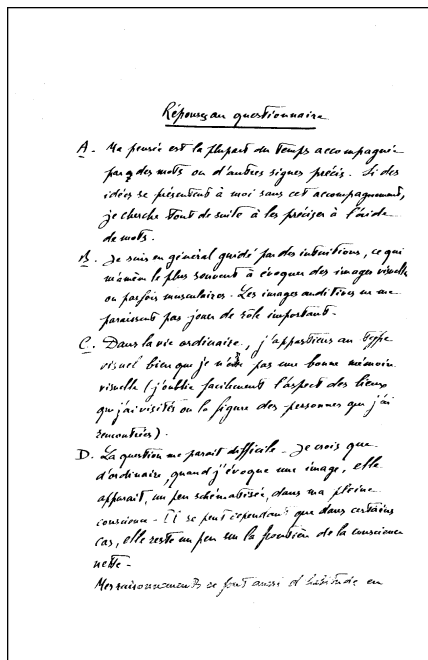 Réponses au questionnaire
A. Ma pensée est la plupart du temps accompagnée
par des mots ou d'autres signes précis. Si des
idées se présentent à moi sans cet accompagnement,
je cherche tout de suite à les préciser à l'aide
de mots.
B. Je suis en général guidé par des intuitions, ce qui
m'amène le plus souvent à évoquer des images visuelles
ou parfois musculaires. Les images auditives ne me
paraissent pas jouer de rôle important.
C. Dans la vie ordinaire, j'appartiens au type
visuel bien que je n'ai pas une bonne mémoire
visuelle (j'oublie facilement l'aspect des lieux
que j'ai visités ou la figure des personnes que j'ai
rencontrées).
D. La question me paraît difficile. Je crois que
d'ordinaire, quand j'évoque une image, elle
apparaît, un peu schématisée, dans ma pleine
conscience. Il se peut cependant que dans certains
cas, elle reste un peu sur la frontière de la conscience
nette.
Mes raisonnements se font aussi d'habitude en